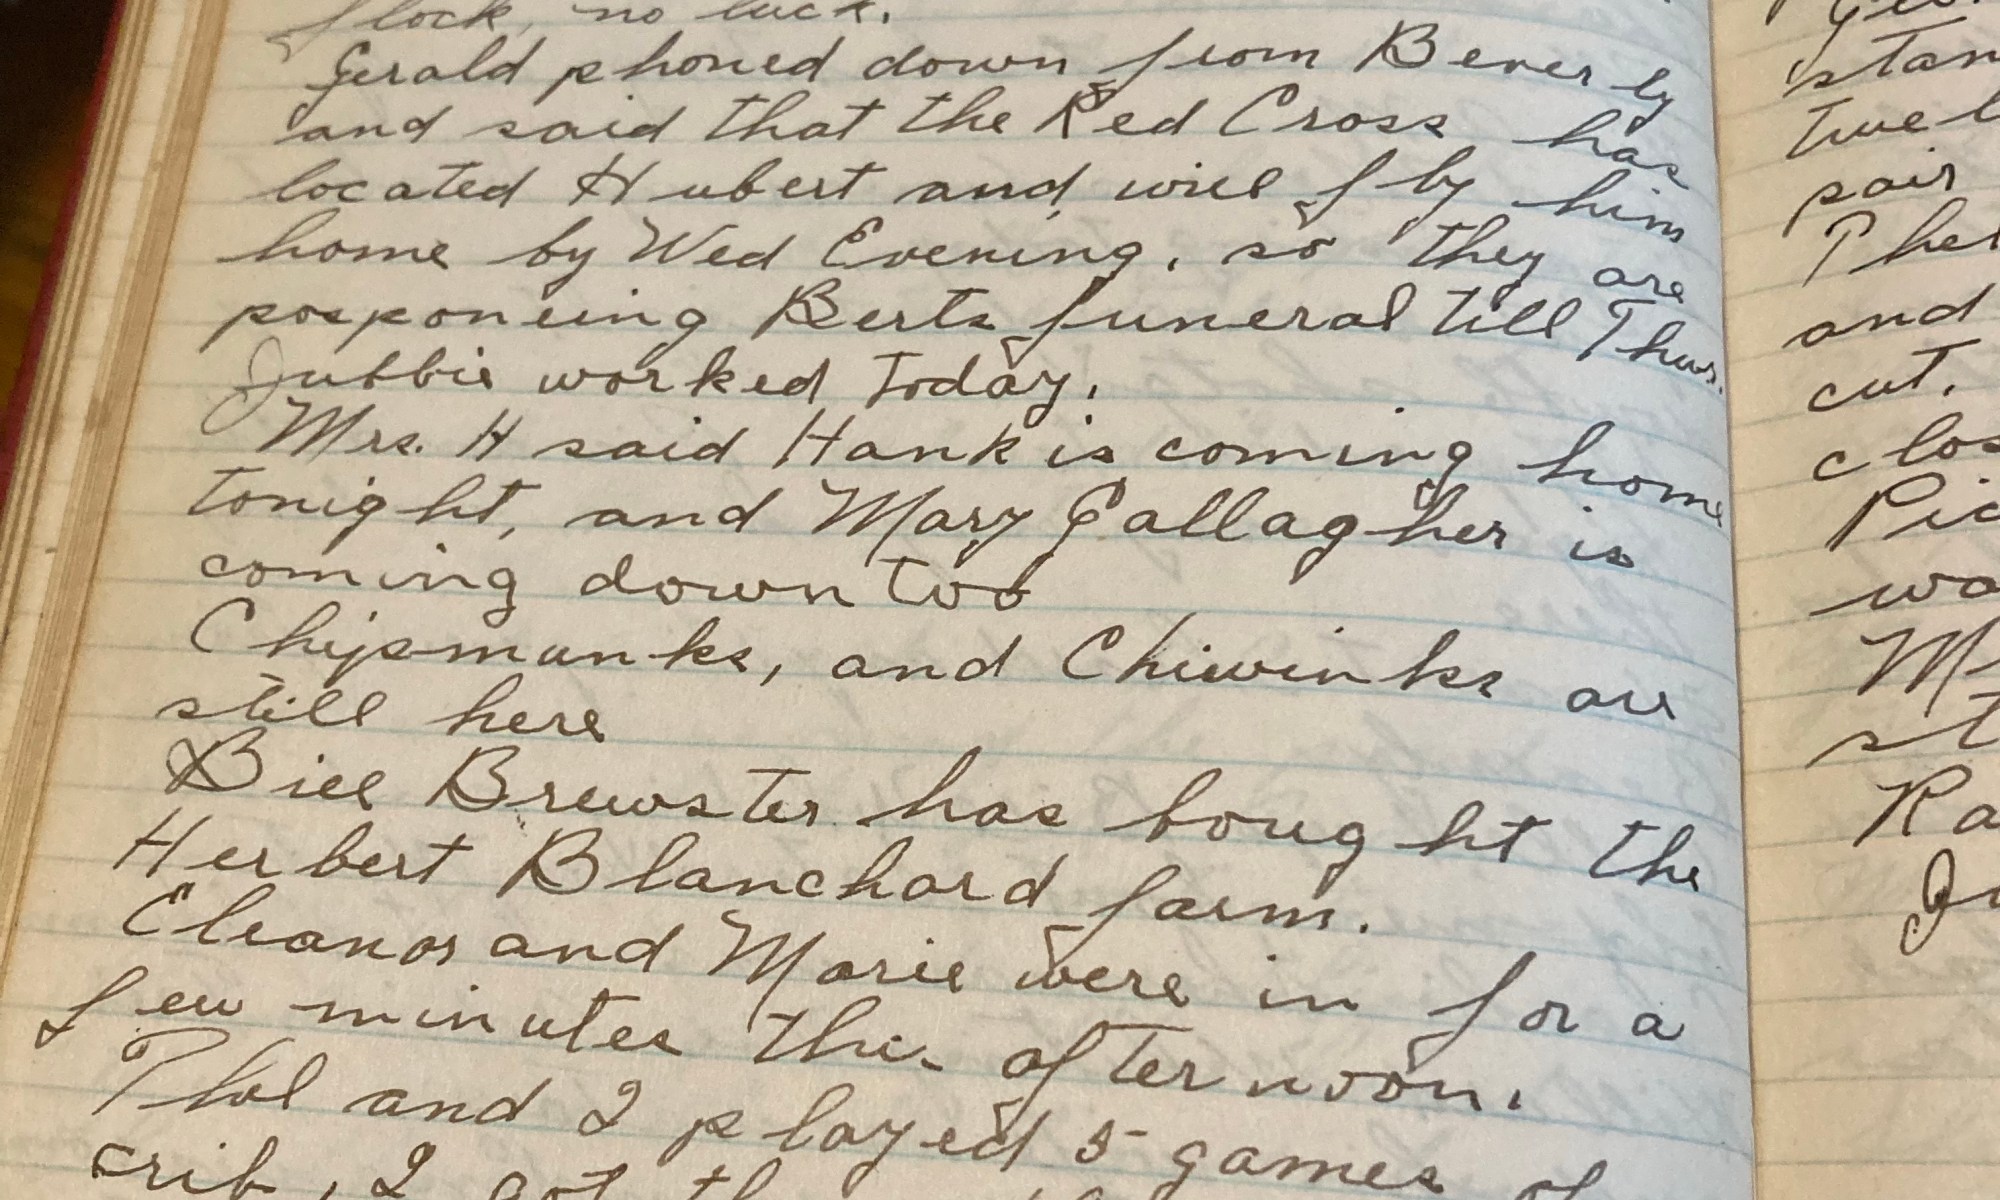 flock, no luck.
Gerald phoned down from Beverly
and said that the Red Cross has
located Hubert and will fly him
home by Wed Evening, so they are
posponeing Berts funeral till Thurs.
Jubbie worked today.
Mrs. H said Hank is coming home
tonight, and Mary Gallagher is
coming down too
Chipmunks, and Chiwinks are
still here
Bill Brewster has bought the
Herbert Blanchard farm.
Eleanor and Marie were in for a
few minutes this afternoon.
Phil and I played 5 games of
crib, I got
stan
twel
pair
Phel
and
cut.
clos
Pic
wa
M
st
Ra